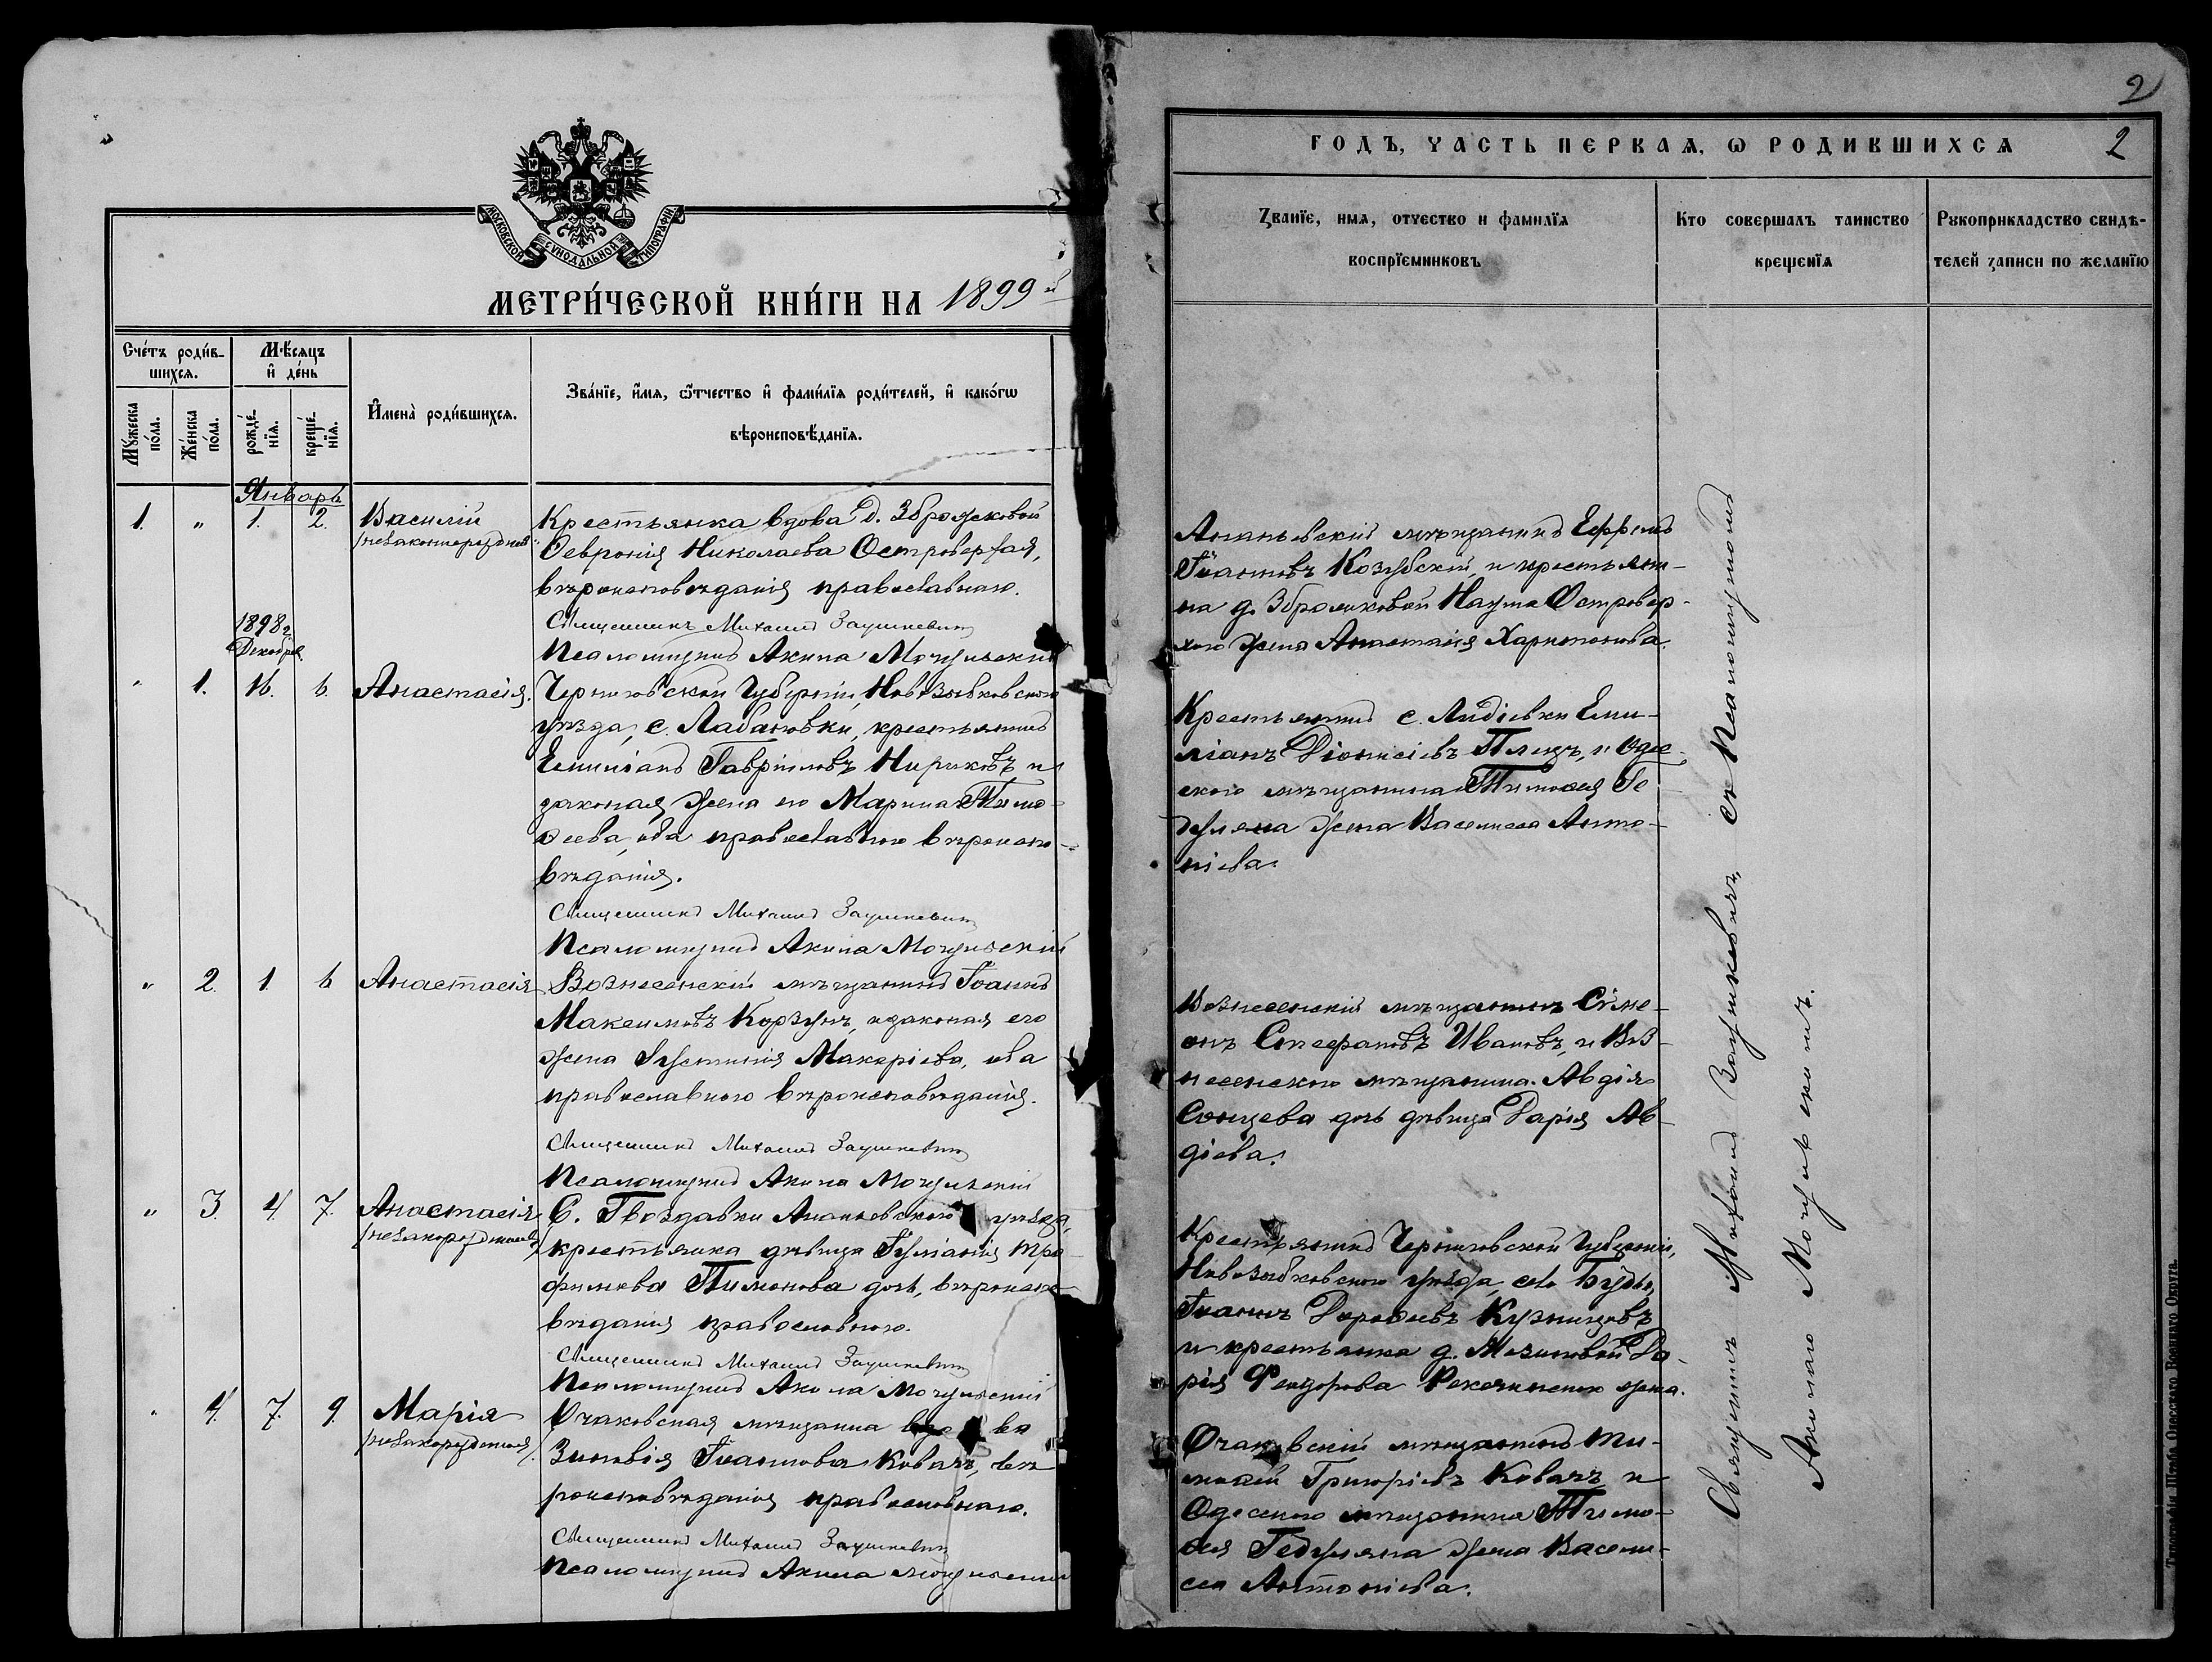 2
МОСКОВСКОЙ СУНОДАЛЬНОЙ ТИПОГРАФІИ.
МЕТРИ́ЧЕСКОЙ КНИ́ГИ НА 1899 й
Сче́тъ роди́в-
шихсѧ.
Мꙋ́жеска
по́ла.
Же́нска
по́ла.
Мѣ́сѧцъ
и҆ де́нь
рожде́-
нїѧ.
креще́-
нїѧ.
И҆мена̀ роди́вшихсѧ.
Зва́нїе, и҆́мѧ, ѻ҆́тчество и҆ фами́лїѧ роди́телей, и҆ како́гѡ
вѣроисповѣ́данїѧ.
Январь
1. " 1. 2.
Василій
/незаконнорожденный
Крестьянка вдова д. Зброжковой
Ѳевронія Николаева Островерхая,
вѣроисповѣданія православнаго.
Священникъ Михаилъ Заушкевичъ
Псаломщикъ Акила Мочульскій
1898 г.
Декабря.
" 1. 16. 6. Анастасія.
Черниговской Губерніи, Новозыбковскаго
уѣзда, с. Лабановки, крестьянинъ
Емиліанъ Гавріиловъ Нириковъ и
законая жена его Марина Тимо-
ѳеева, оба православнаго вѣроиспо-
вѣданія.
Священникъ Михаилъ Заушкевичъ
Псаломщикъ Акила Мочульскій
" 2. 1. 6 Анастасія
Вознесенскій мѣщанинъ Іоаннъ
Максимовъ Корзунъ, и законая его
жена Іустинія Макаріева, оба
православного вѣроисповѣданія.
Священникъ Михаилъ Заушкевичъ
Псаломщикъ Акила Мочульскій
" 3. 4. 7. Анастасія
/незакорожденная/
С. Гвоздавки Ананьевского уѣзда,
крестьянка дѣвица Іуліанія Тро-
фимова Пимонова дочь, вѣроиспо-
вѣданія православного.
Священникъ Михаилъ Заушкевичъ
Псаломщикъ Акила Мочульскій
" 4. 7. 9. Марія
/незакорожденная/.
Очаковская мѣщанка вдова
Зиновія Іоаннова Ковачъ, вѣ-
роисповѣданія православнаго.
Священникъ Михаилъ Заушкевичъ
Псаломщикъ Акила Мочульскій
ГОДЪ, ЧАСТЬ ПЕРВАѦ, Ѡ РОДИВШИХСѦ 2
Званїе, имѧ, отчество и фамилїѧ
воспрїемниковъ
Кто совершалъ таинство
крещенїѧ
Рꙋкоприкладство свидѣ-
телей записи по желанїю
Ананьевскій мѣщанинъ Ефремъ
Іоанновъ Козубскій, и крестьяни-
на д. Зброжковой Наума Островер-
хого жена Анастасія Харитонова.
Крестьянинъ с. Лидіевки Еми-
ліанъ Діонисіевъ Плецъ, и Одес-
ского мѣщанина Тимоѳея Ге-
дульяна жена Василиса Анто-
ніева.
Вознесенскій мѣщанинъ Сіме-
онъ Стефановъ Ивановъ, и Воз-
несенского мѣщанина Авдія
Сонцева дочь дѣвица Дарія Ав-
діева.
Крестьянинъ Черниговской Губерніи,
Новозыбковскаго уѣзда, села Буды,
Іоаннъ Дороѳеевъ Кузнецовъ
и крестьянка д. Мазиновой Да-
рія Феодорова жена.
Очаковскій мѣщанинъ Ти-
моѳей Григоріевъ Ковачъ и
Одесского мѣщанина Тимо-
ѳея Гедульяна жена Васили-
са Антоніева.
Священникъ Михаилъ Заушкевичъ, съ Псаломщикомъ
Акилою Мочульскимъ.
Типографія Штаба Одесскаго Военнаго Округа.